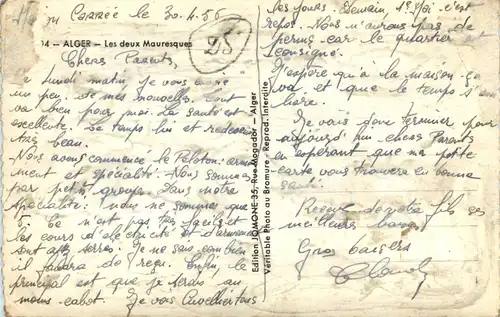 Carrée le 30.4.56
25
14 – ALGER – Les deux Mauresques
Chers Parents,
Ce lundi matin, je vous envoie
un peu de mes nouvelles. Tout
va bien pour moi. La santé est
excellente. Le temps lui est redevenu
très beau.
Nous avons commencé le Peloton: arme-
ment et spécialité. Nous sommes
par petits groupes. Dans notre
spécialité: nous ne sommes que
15. Ce n'est pas très facile et
les cours d'électricité et d'armement
sont assez serrés. Je ne sais combien
il faudra de reçu. Enfin, le
principal est que je serais au
moins cabot. Je vais
les jours. Demain, 1er Mai, c'est
repos. Nous n'aurons pas de
perms car le quartier est
consigné.
J'espère qu'à la maison ça
va et que le temps s'améliore.
Je vais donc terminer pour
aujourd'hui chers Parents
en espérant que ma petite
carte vous trouvera en bonne
santé.
Recevez de votre fils ses
meilleurs
Gros baisers
Claude
Edition JOMONE 35, Rue Mogador – Alger
Véritable Photo au Bromure – Reprod. Interdite